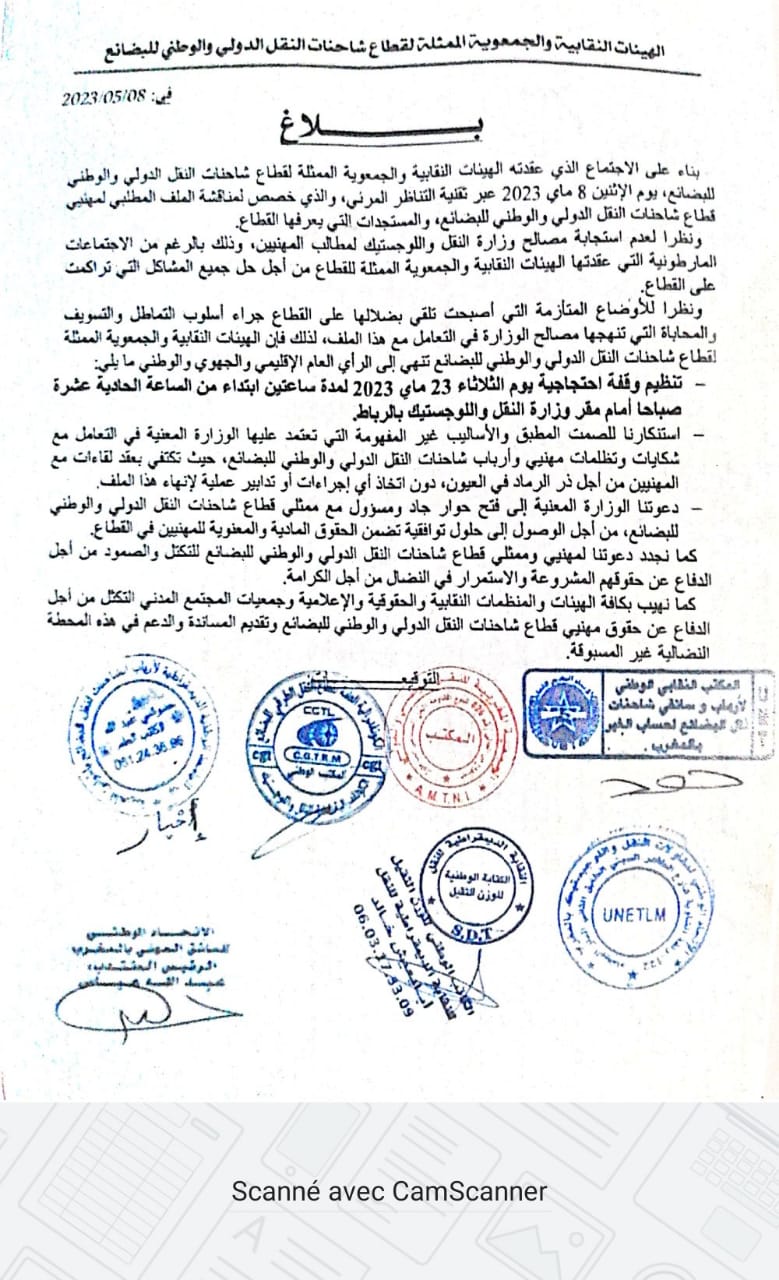 الهيئات النقابية والجمعوية الممثلة لقطاع شاحنات النقل الدولي والوطني للبضائع
في: 2023/05/08
بـــــــــلاغ
بناء على الاجتماع الذي عقدته الهيئات النقابية والجمعوية الممثلة لقطاع شاحنات النقل الدولي والوطني
للبضائع، يوم الإثنين 8 ماي 2023 عبر تقنية التناظر المرئي، والذي خصص لمناقشة الملف المطلبي لمهنيي
قطاع شاحنات النقل الدولي والوطني للبضائع، والمستجدات التي يعرفها القطاع.
ونظرا لعدم استجابة مصالح وزارة النقل واللوجستيك لمطالب المهنيين، وذلك بالرغم من الاجتماعات
المارطونية التي عقدتها الهيئات النقابية والجمعوية الممثلة للقطاع من أجل حل جميع المشاكل التي تراكمت
على القطاع.
ونظرا للأوضاع المتأزمة التي أصبحت تلقي بضلالها على القطاع جراء أسلوب التماطل والتسويف
والمحاباة التي تنهجها مصالح الوزارة في التعامل مع هذا الملف، لذلك فإن الهيئات النقابية والجمعوية الممثلة
لقطاع شاحنات النقل الدولي والوطني للبضائع تنهي إلى الرأي العام الإقليمي والجهوي والوطني ما يلي:
– تنظيم وقفة احتجاجية يوم الثلاثاء 23 ماي 2023 لمدة ساعتين ابتداء من الساعة الحادية عشرة
صباحا أمام مقر وزارة النقل واللوجستيك بالرباط.
– استنكارنا للصمت المطبق والأساليب غير المفهومة التي تعتمد عليها الوزارة المعنية في التعامل مع
شكايات وتظلمات مهنيي وأرباب شاحنات النقل الدولي والوطني للبضائع، حيث تكتفي بعقد لقاءات مع
المهنيين من أجل ذر الرماد في العيون، دون اتخاذ أي إجراءات أو تدابير عملية لإنهاء هذا الملف.
– دعوتنا الوزارة المعنية إلى فتح حوار جاد ومسؤول مع ممثلي قطاع شاحنات النقل الدولي والوطني
للبضائع، من أجل الوصول إلى حلول توافقية تضمن الحقوق المادية والمعنوية للمهنيين في القطاع.
كما نجدد دعوتنا لمهنيي وممثلي قطاع شاحنات النقل الدولي والوطني للبضائع للتكتل والصمود من أجل
الدفاع عن حقوقهم المشروعة والاستمرار في النضال من أجل الكرامة.
كما نهيب بكافة الهيئات والمنظمات النقابية والحقوقية والإعلامية وجمعيات المجتمع المدني التكثل من أجل
الدفاع عن حقوق مهنيي قطاع شاحنات النقل الدولي والوطني للبضائع وتقديم المساندة والدعم في هذه المحطة
النضالية غير المسبوقة.
المكتب النقابي الوطني
لأرباب و سائقي شاحنات
نقل البضائع لحساب الغير
بالمغرب
المكتب
A.M.T.N.I
CGTL
C.G.T.R.M
المكتب الوطني
cgt
cgt
إخبار
النقابة الديمقراطية للنقل
الكتابة الوطنية
للوزن الثقيل
S.D.T
الكاتب الوطني للوزن الثقيل
للنقابة الديمقراطية للنقل
خالد
06.03.17.93.09
UNETLM
الاتحاد الوطني
للسائق المهني بالمغرب
الرئيس المنتدب:
عبد الله عباس
Scanné avec CamScanner